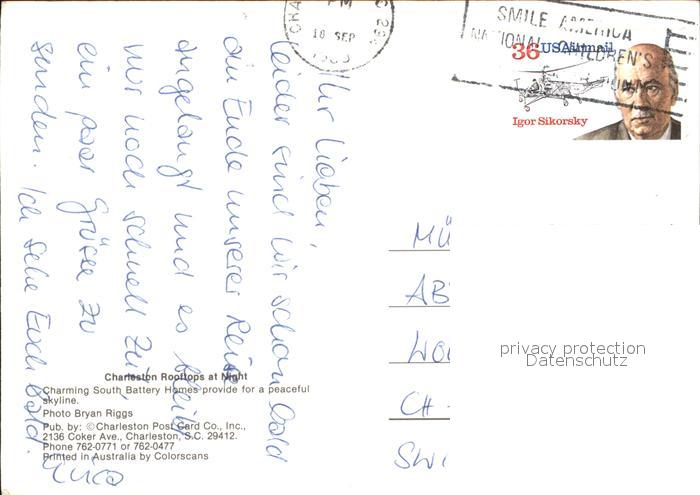 PM
18 SEP
SMILE AMERICA
NATIONAL CHILDREN'S
36 USAirmail
Igor Sikorsky
Ihr Lieben,
leider sind wir schon bald
am Ende unserer Reise
angelangt und es bleibt
nur noch schnell Zeit,
ein paar Grüsse zu
senden. Ich sehe Euch bald.
MÜ
AB
WO
CH -
SWI
privacy protection
Datenschutz
Charleston Rooftops at Night
Charming South Battery Homes provide for a peaceful
skyline.
Photo Bryan Riggs
Pub. by: ©Charleston Post Card Co., Inc.,
2136 Coker Ave., Charleston, S.C. 29412.
Phone 762-0771 or 762-0477
Printed in Australia by Colorscans